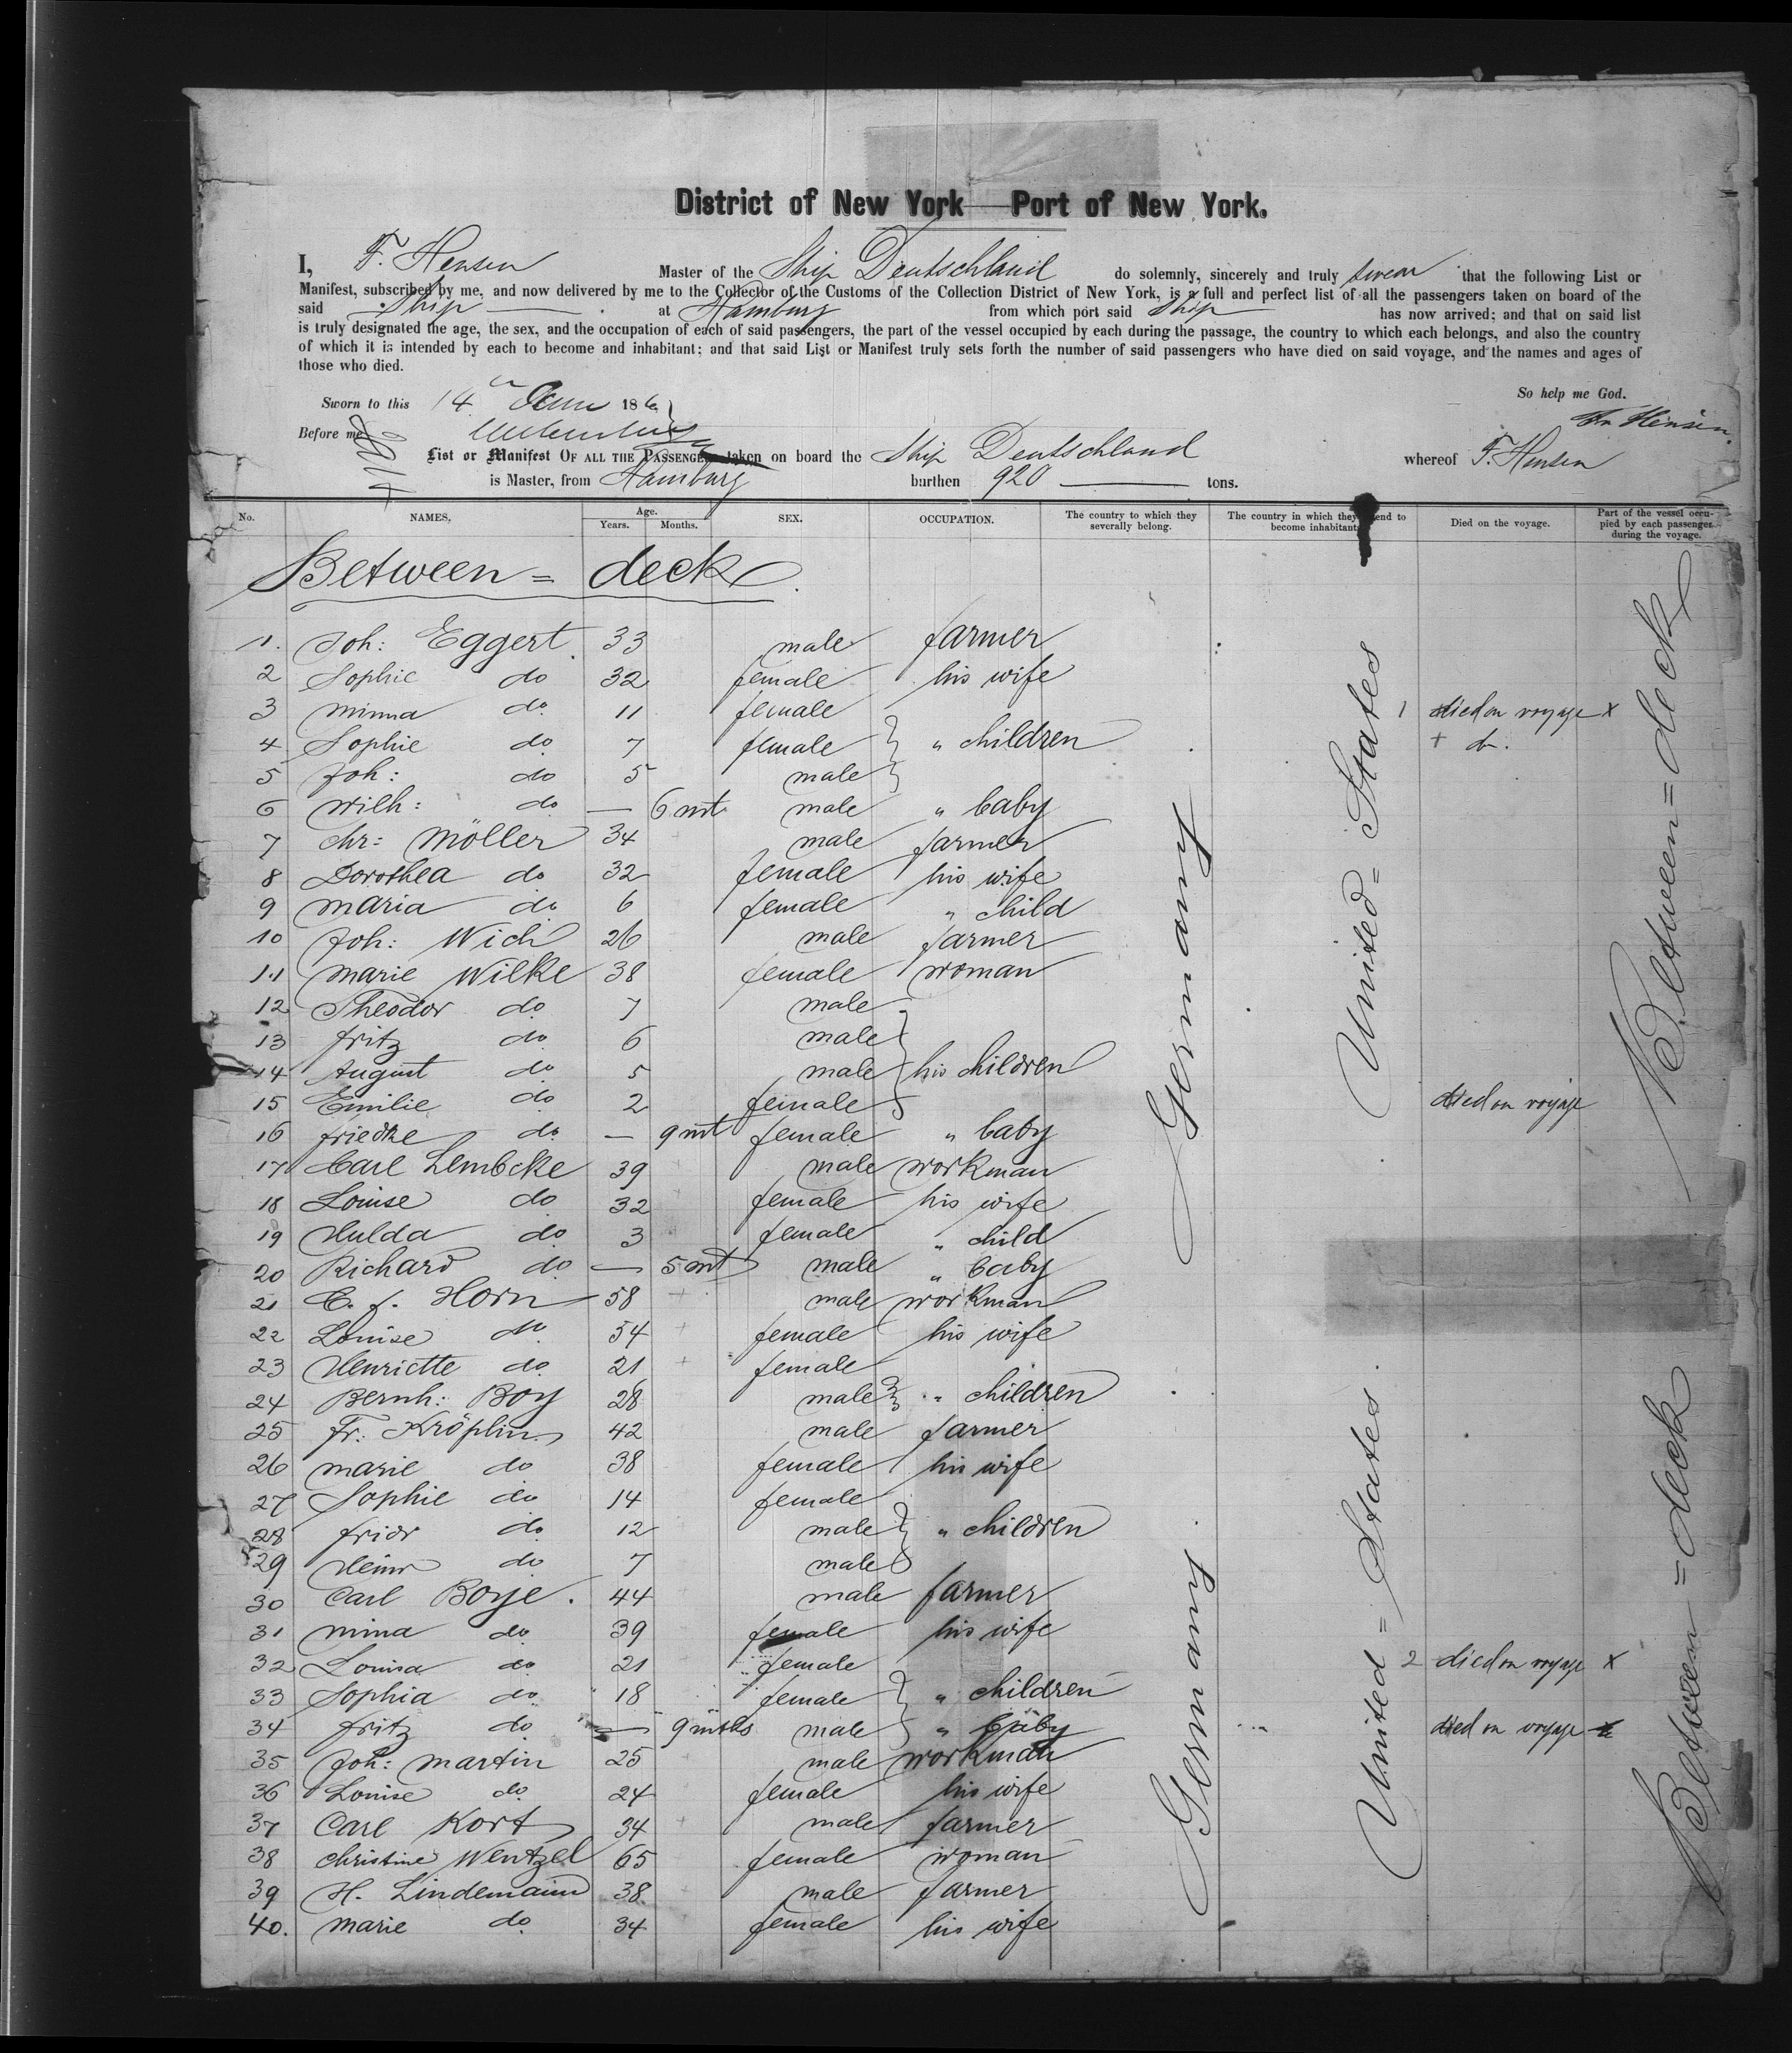 District of New York—Port of New York.
I, F. Hensen Master of the Ship Deutschland do solemnly, sincerely and truly swear that the following List or
Manifest, subscribed by me, and now delivered by me to the Collector of the Customs of the Collection District of New York, is a full and perfect list of all the passengers taken on board of the
said Ship at Hamburg from which port said Ship has now arrived; and that on said list
is truly designated the age, the sex, and the occupation of each of said passengers, the part of the vessel occupied by each during the passage, the country to which each belongs, and also the country
of which it is intended by each to become and inhabitant; and that said List or Manifest truly sets forth the number of said passengers who have died on said voyage, and the names and ages of
those who died.
So help me God.
Sworn to this 14 186
Hensen.
Before me
List or Manifest OF ALL THE PASSENGERS taken on board the Ship Deutschland whereof F. Hensen
is Master, from Hamburg burthen 920 tons.
No. NAMES. Age. Years. Months. SEX. OCCUPATION. The country to which they severally belong. The country in which they intend to become inhabitants. Died on the voyage. Part of the vessel occupied by each passenger during the voyage.
Between = deck.
1. Joh: Eggert. 33 male farmer
2 Sophie do 32 female his wife
3 Minna do 11 female 1 died on voyage x
4 Sophie do 7 female " children + do.
5 Joh: do 5 male
6 Wilh: do — 6 mt male " baby
7 Chr: Möller 34 male farmer
8 Dorothea do 32 female his wife
9 Maria do 6 female " child
10 Joh: Wich 26 male farmer
11 Marie Wilke 38 female woman
12 Theodor do 7 male
13 Fritz do 6 male
14 August do 5 male his children
15 Emilie do 2 female died on voyage
16 Friedke do — 9 mt female " baby
17 Carl Lembcke 39 male workman
18 Louise do 32 female his wife
19 Hulda do 3 female " child
20 Richard do — 5 mt male " baby
21 C. f. Horn 58 male workman
22 Louise do 54 female his wife
23 Henriette do 21 female
24 Bernh: Boy 28 male " children
25 Fr. Kröplin 42 male farmer
26 Marie do 38 female his wife
27 Sophie do 14 female
28 Fridr do 12 male " children
29 Heinr do 7 male
30 Carl Boye. 44 male farmer
31 Mina do 39 female his wife
32 Louisa do 21 female 2 died on voyage x
33 Sophia do 18 female " children
34 Fritz do — 9 mths male " baby died on voyage x
35 Joh: Martin 25 male workman
36 Louise do 24 female his wife
37 Carl Kort 34 male farmer
38 Christine Wentzel 65 female woman
39 H. Lindemann 38 male farmer
40. Marie do 34 female his wife
Germany
Germany
United = States
United = States
Between = deck
Between = deck